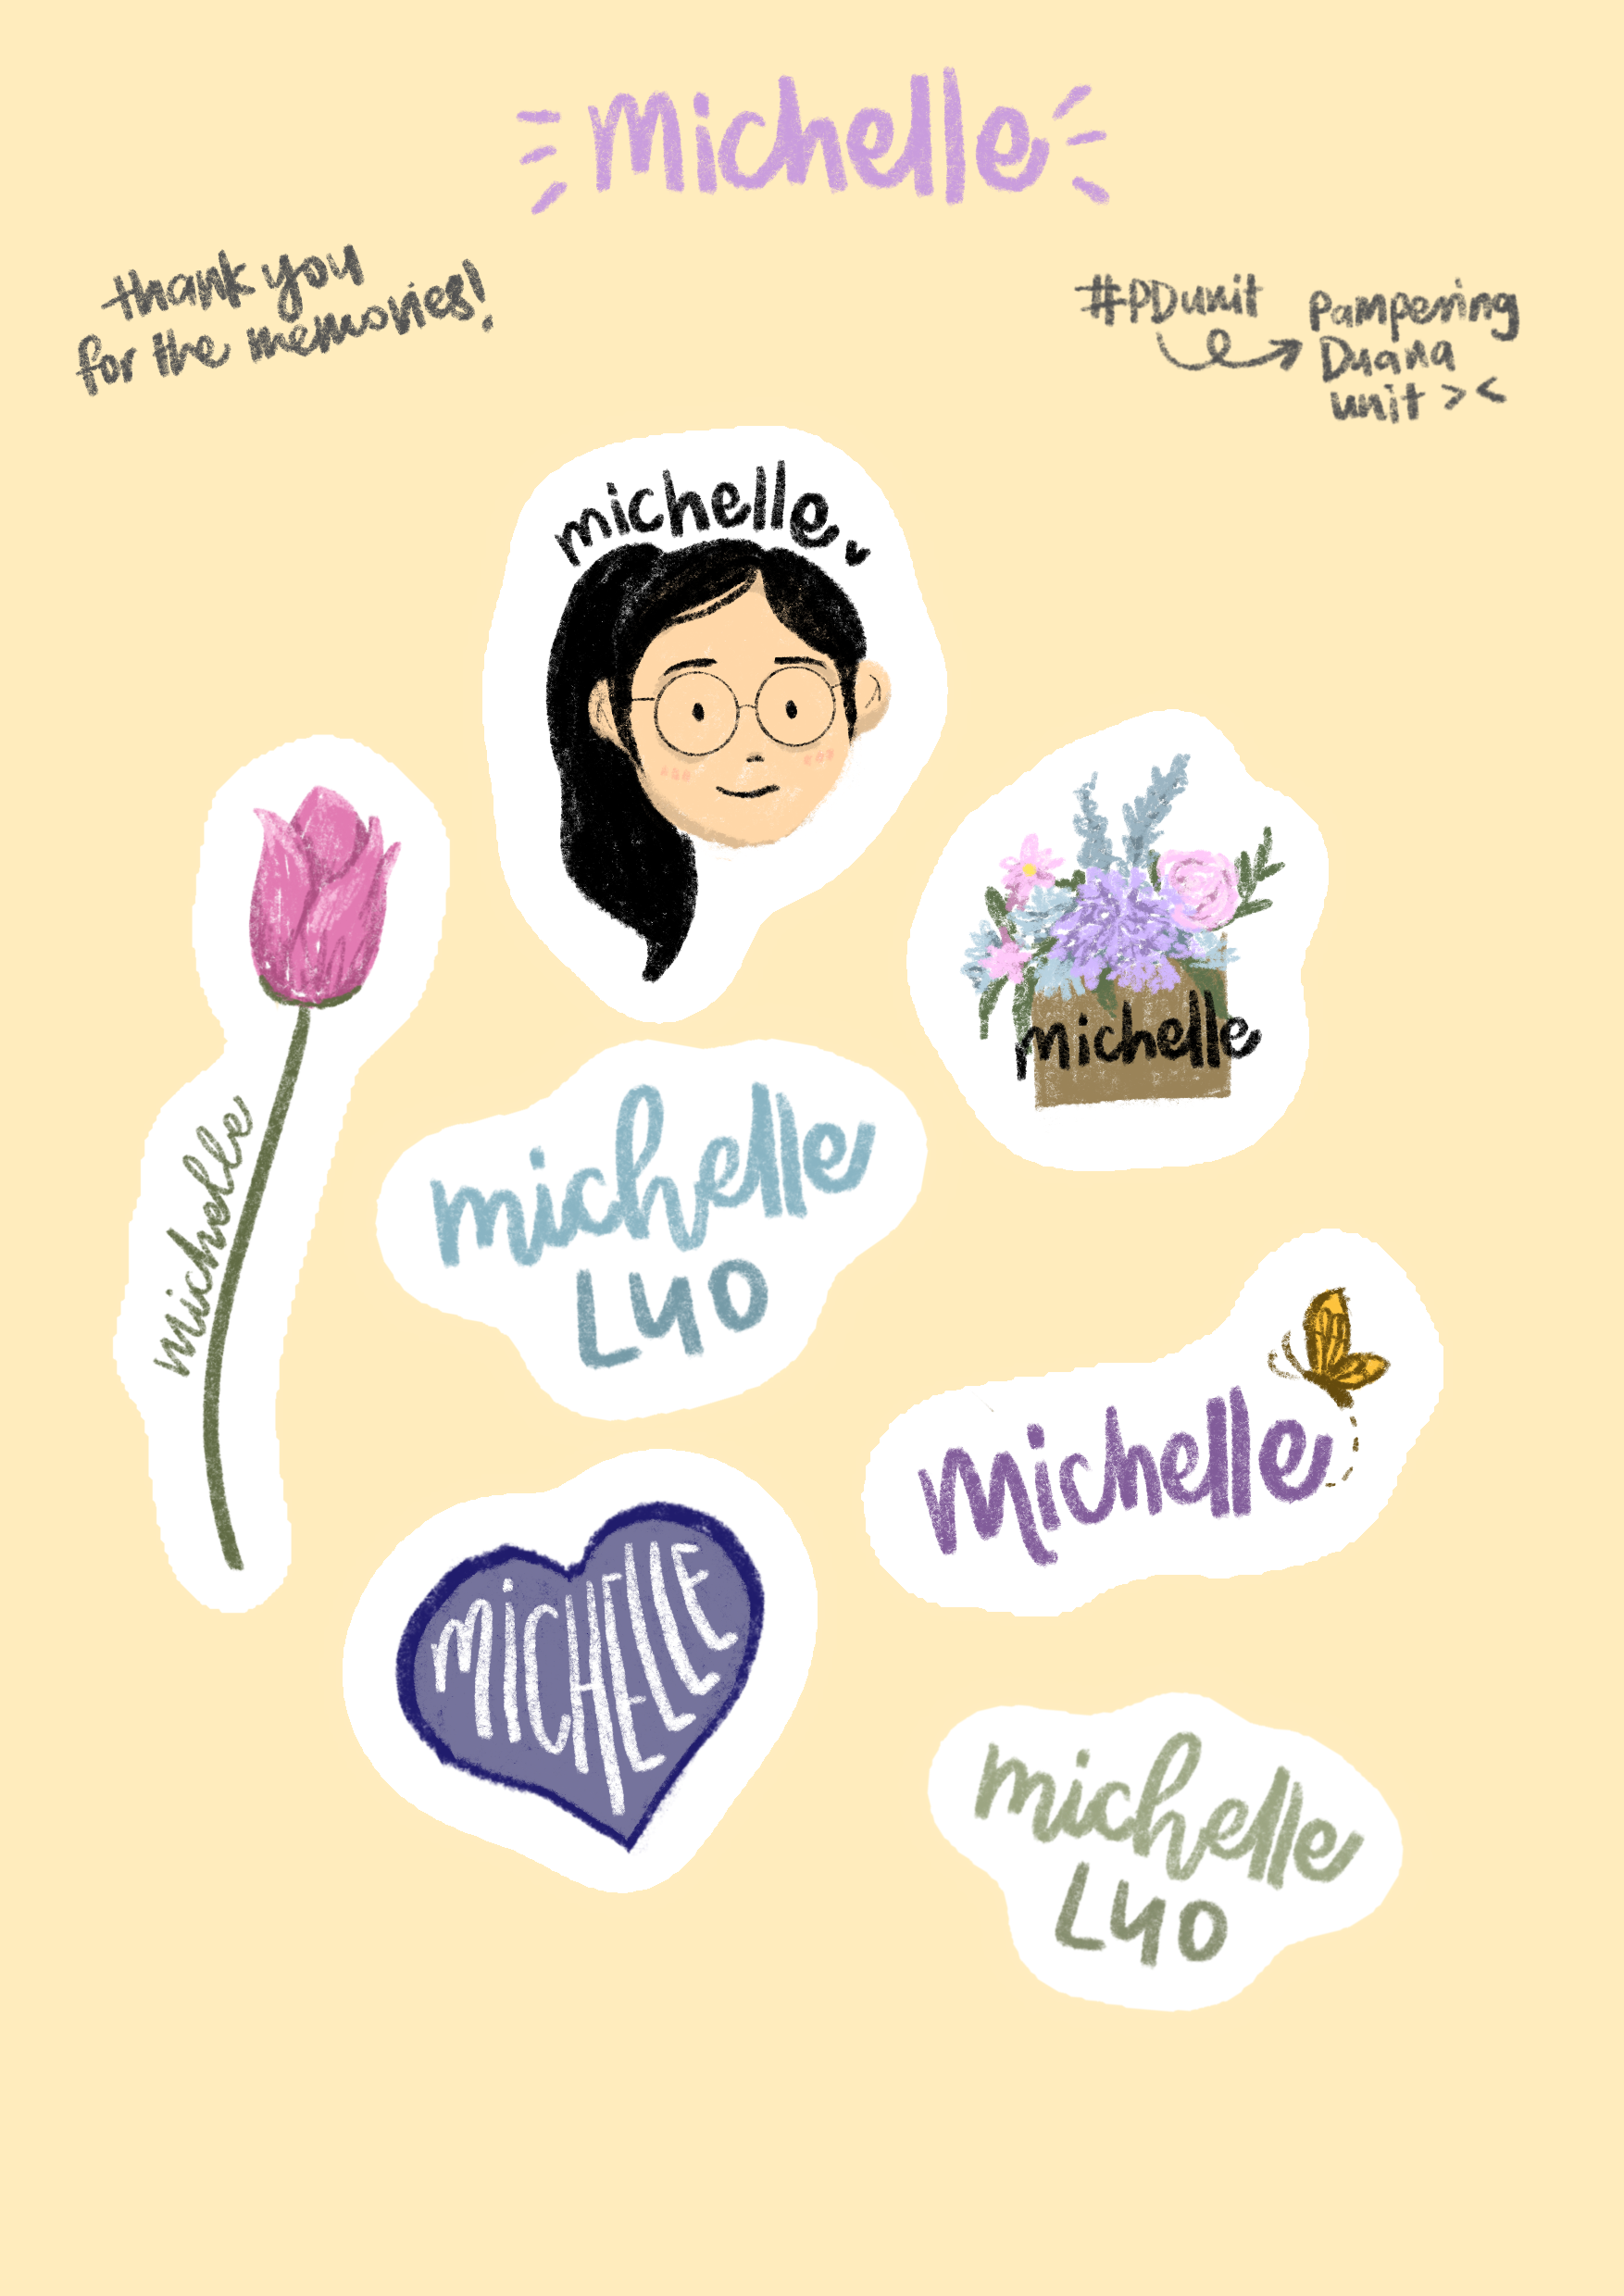 Michelle
thank you
for the memories!
#PDunit
Pampering
Duana
unit ><
michelle
michelle
michelle
michelle
Luo
Michelle
MICHELLE
michelle
Luo